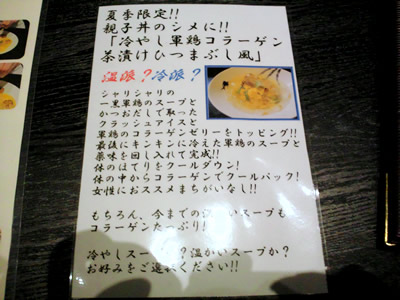 夏季限定!!
親子丼のシメに!!
「冷やし軍鶏コラーゲン
茶漬けひつまぶし風」
温派?冷派?
シャリシャリの
一黒軍鶏のスープと
かつおだしで取った
クラッシュアイスと
軍鶏のコラーゲンゼリーをトッピング!!
最後にキンキンに冷えた軍鶏のスープと
薬味を回し入れて完成!!
体のほてりをクールダウン!
体の中からコラーゲンでクールパック!
女性におススメまちがいなし!!
もちろん、今までの温かいスープも
コラーゲンたっぷり!
冷やしスープ?温かいスープか?
お好みをご選択ください!!